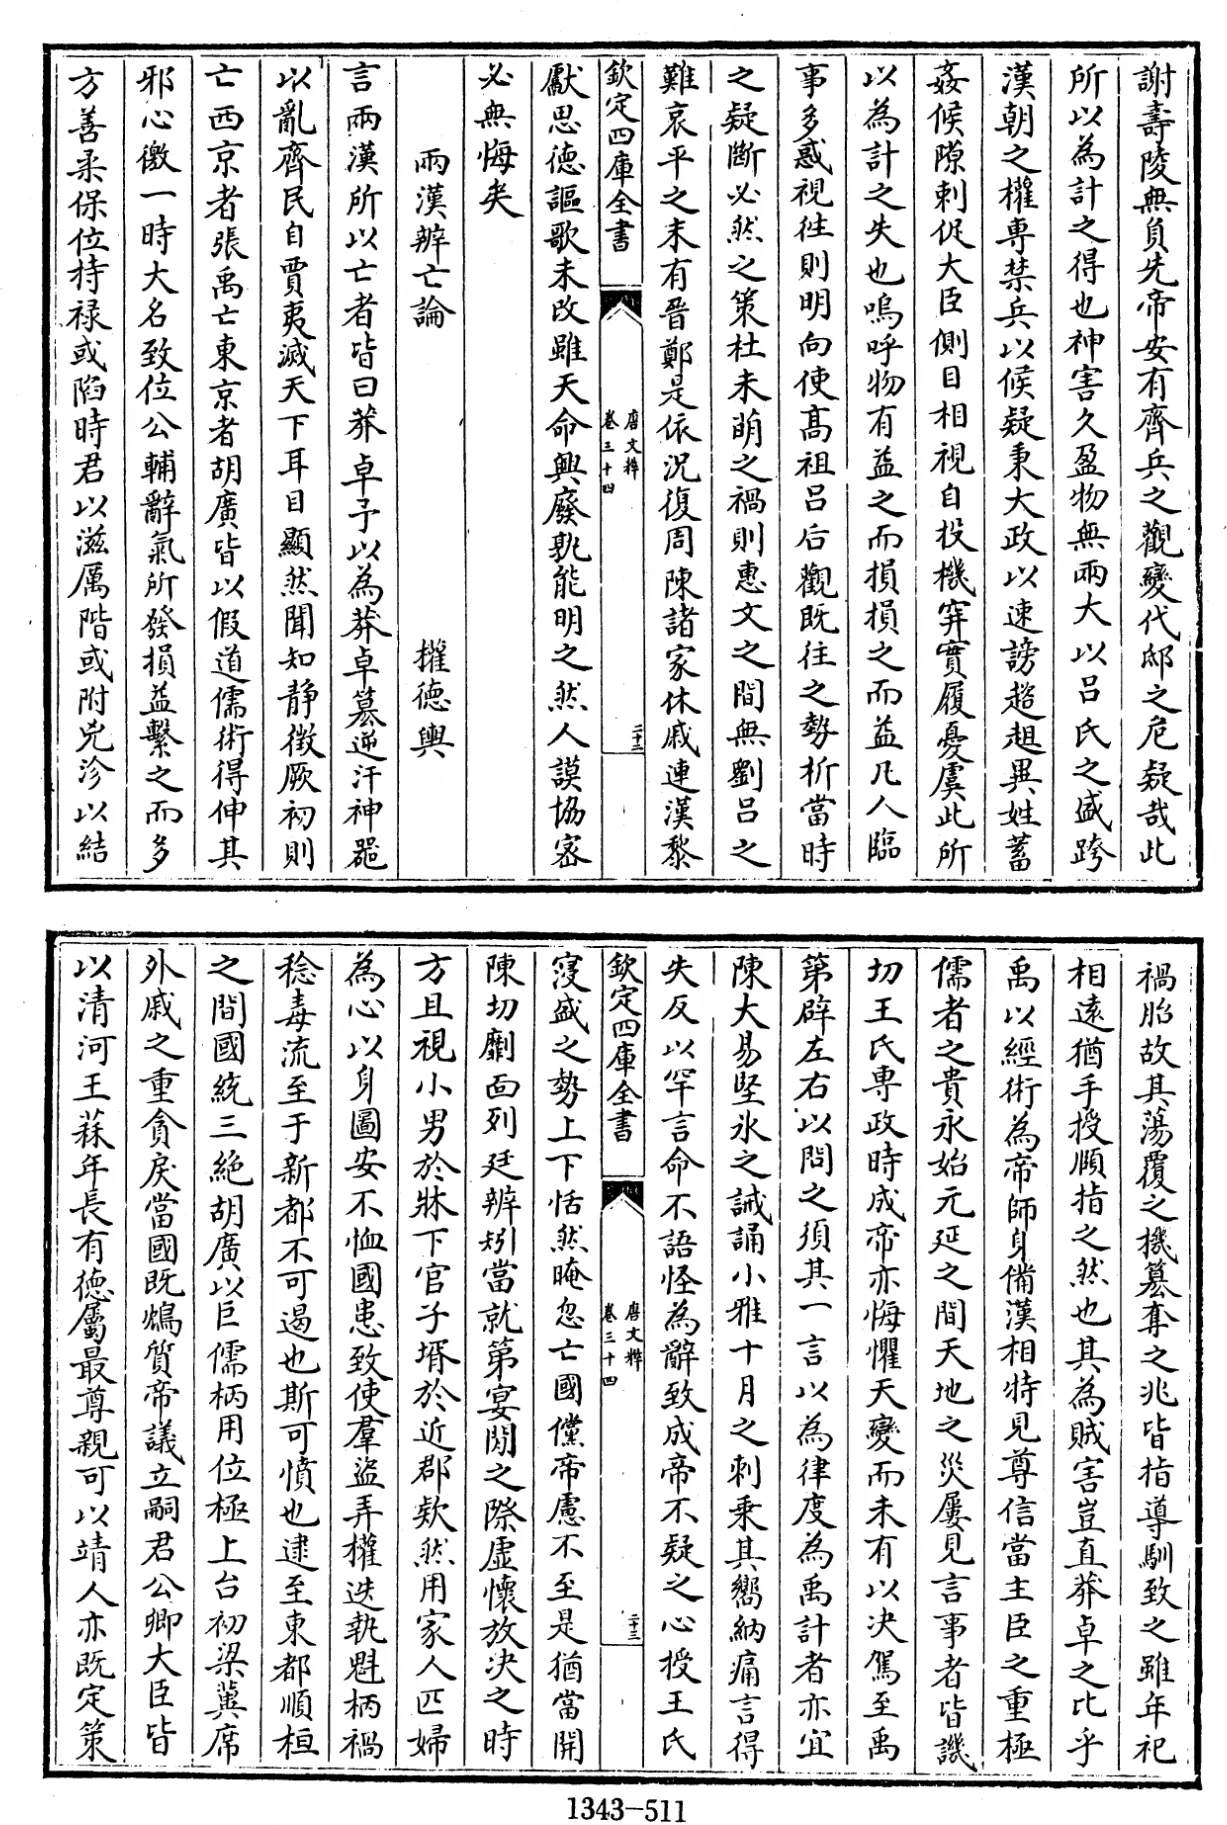 謝壽陵無負先帝安有齊兵之觀變代邸之危疑哉此
所以為計之得也神害久盈物無兩大以吕氏之盛跨
漢朝之權專禁兵以候疑秉大政以速謗趑趄異姓蓄
姦候隙刺促大臣側目相視自投機穽實履憂虞此所
以為計之失也嗚呼物有益之而損損之而益凡人臨
事多惑視徃則明向使髙祖吕后觀既往之勢析當時
之疑斷必然之策杜未萌之禍則惠文之間無劉吕之
難哀平之末有晉鄭是依況復周陳諸家休戚連漢黎
欽定四庫全書
唐文粹
卷三十四
二十二
獻思德謳歌未改雖天命興廢孰能明之然人謨協宻
必無悔矣
兩漢辨亡論 權德輿
言兩漢所以亡者皆曰莽卓予以為莽卓簒逆汗神噐
以亂齊民自賈夷滅天下耳目顯然聞知静徴厥初則
亡西京者張禹亡東京者胡廣皆以假道儒術得伸其
邪心徼一時大名致位公輔辭氣所發損益繫之而多
方善柔保位持禄或陷時君以滋厲階或附兇沴以結
禍胎故其蕩覆之機簒奪之兆皆指導馴致之雖年祀
相逺猶手授頤指之然也其為賊害豈直莽卓之比乎
禹以經術為帝師身備漢相特見尊信當主臣之重極
儒者之貴永始元延之間天地之災屢見言事者皆譏
切王氏専政時成帝亦悔懼天變而未有以决駕至禹
第辟左右以問之須其一言以為律度為禹計者亦宜
陳大易堅氷之誡誦小雅十月之刺乗其嚮納痛言得
失反以罕言命不語怪為辭致成帝不疑之心授王氏
欽定四庫全書
唐文粹
卷三十四
二十三
寖盛之勢上下恬然晻忽亡國儻帝慮不至是猶當開
陳切劘面列廷辨矧當就第宴閒之際虛懷放决之時
方且視小男於牀下官子壻於近郡欵然用家人匹婦
為心以身圖安不恤國患致使羣盜弄權迭執魁柄禍
稔毒流至于新都不可遏也斯可憤也逮至東都順桓
之間國統三絶胡廣以巨儒柄用位極上台初梁冀席
外戚之重貪戾當國既鴆質帝議立嗣君公卿大臣皆
以清河王蒜年長有德屬最尊親可以靖人亦既定策
1343-511